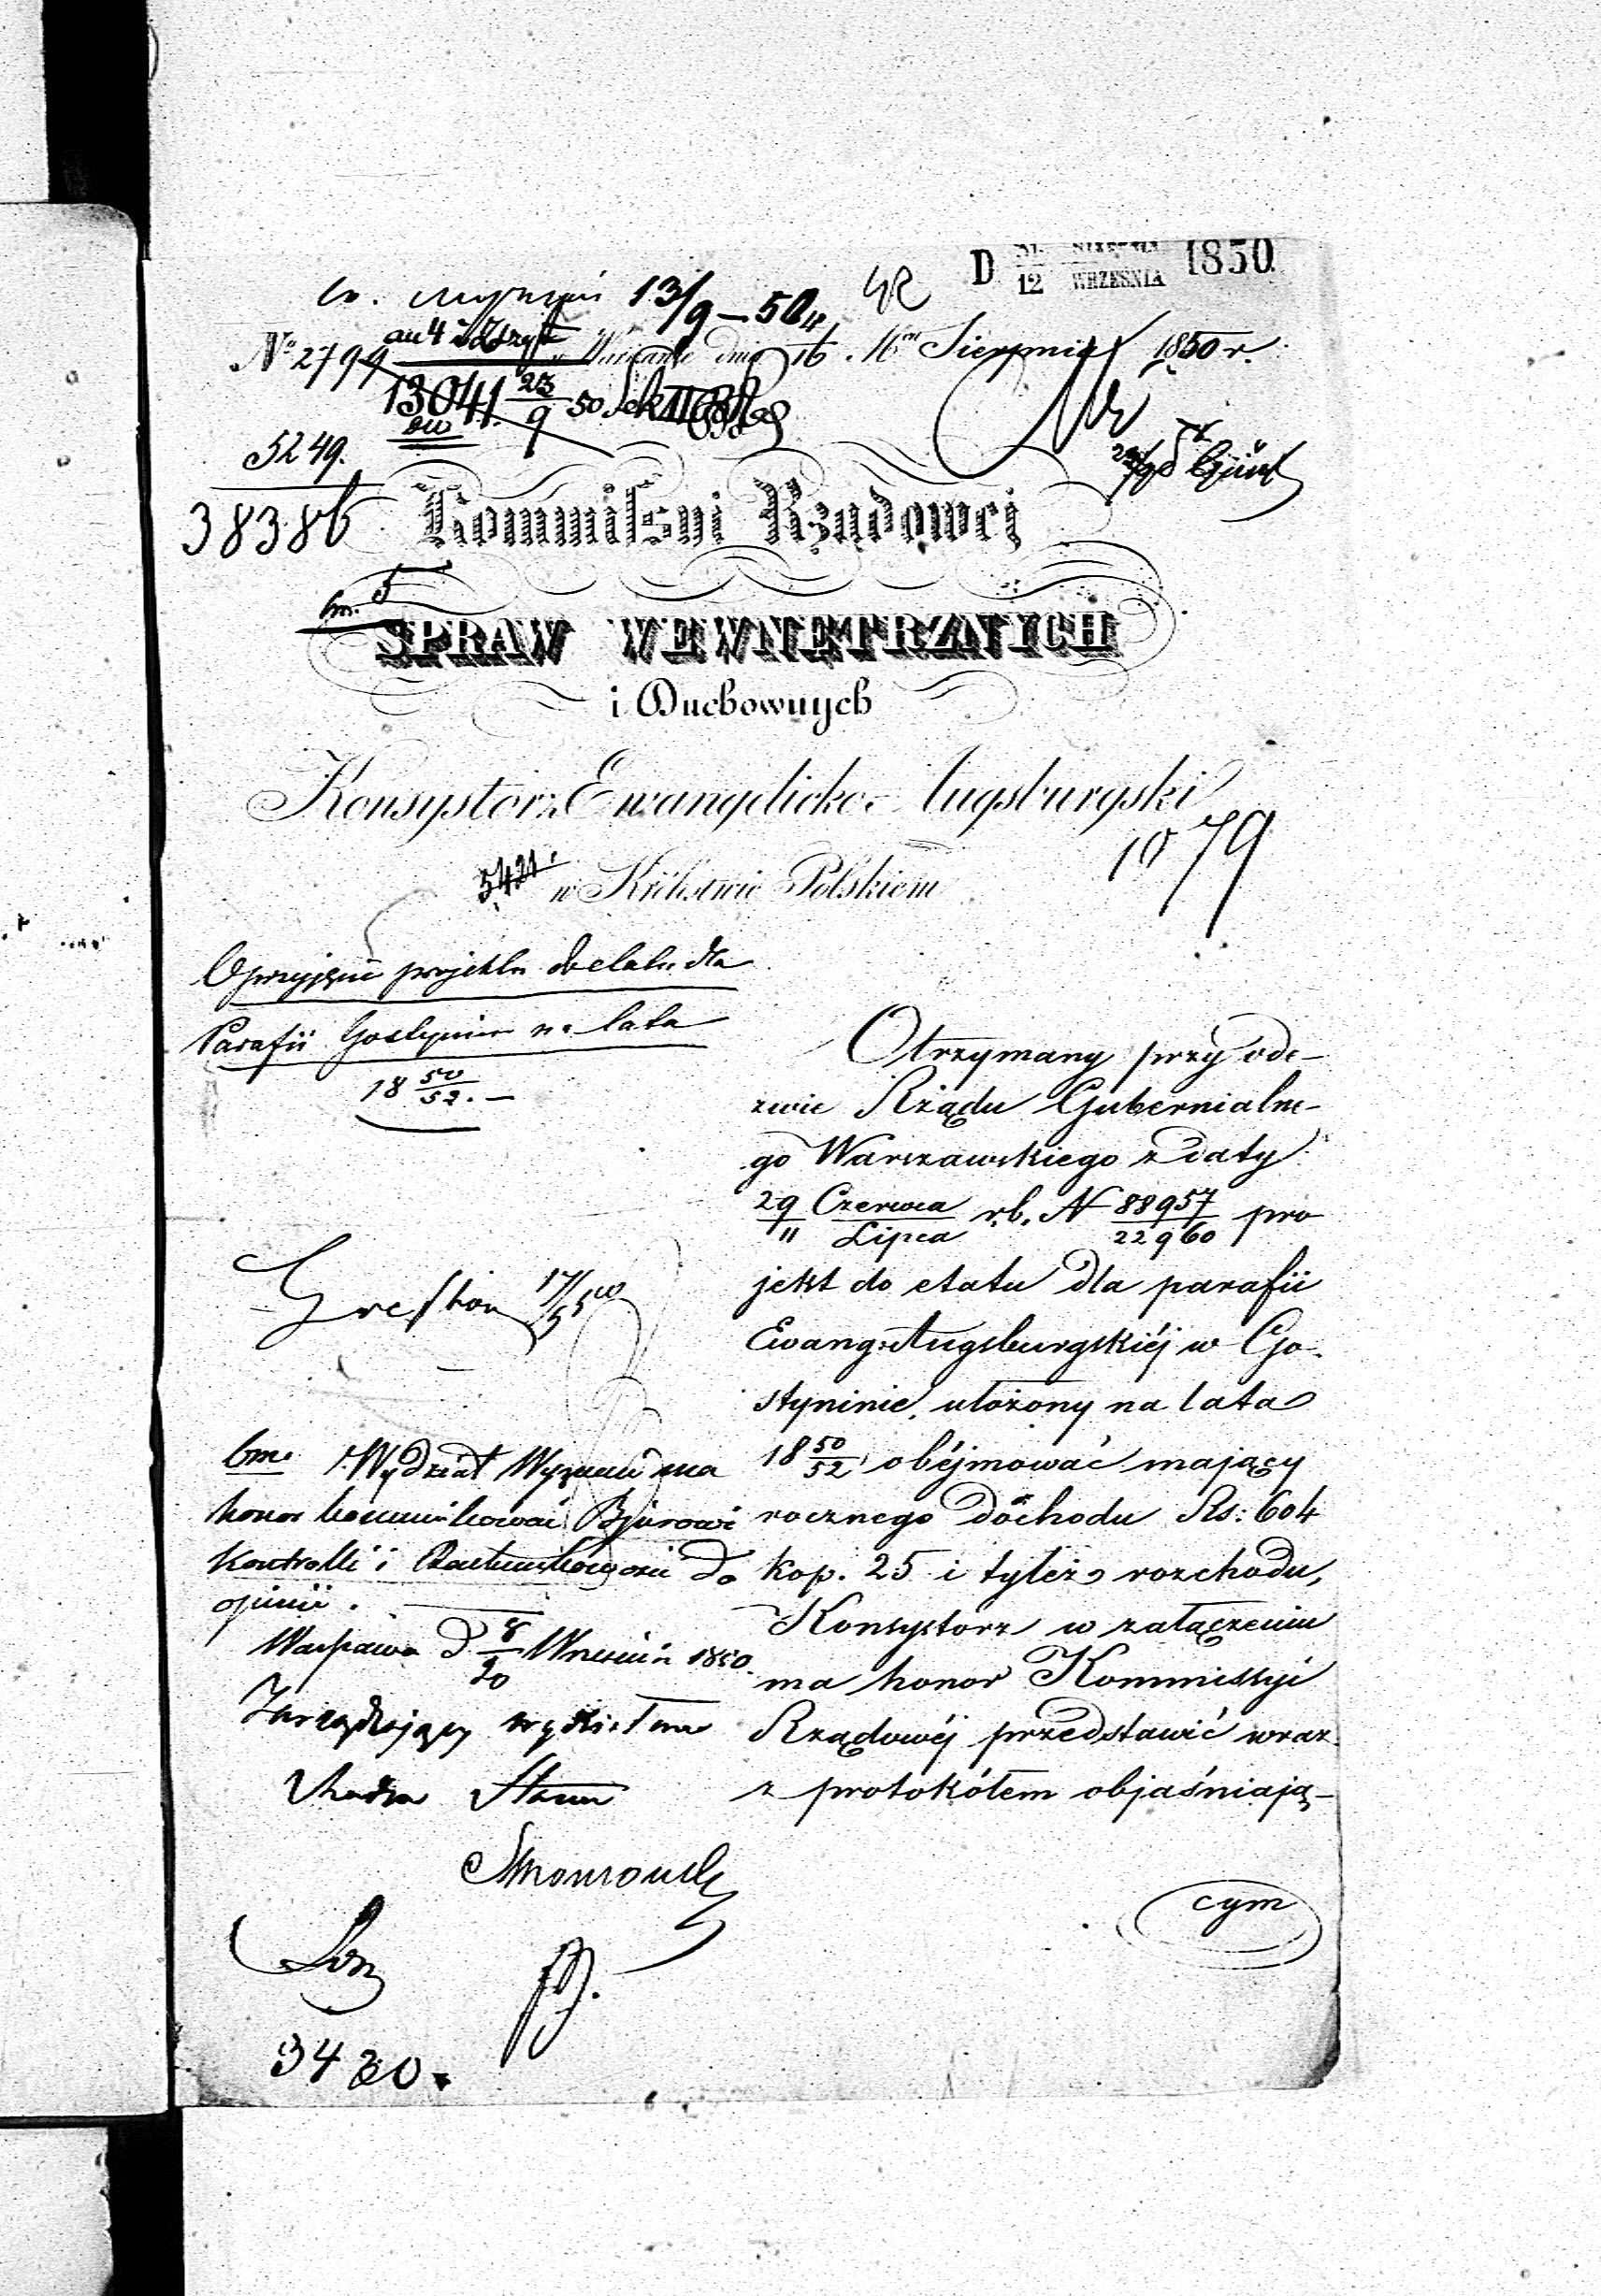 D 31 SIERPNIA
12 WRZEŚNIA 1850
13/9 – 50
No 2794
w Warszawie dnia 16 Sierpnia 1850 r.
13041 23/9 50
5249.
38386
Kommissyi Rządowej
SPRAW WEWNĘTRZNYCH
i Duchownych
Konsystorz Ewangelicko-Augsburgski
1079
5421
w Królestwie Polskiem
O przyjęciu projektu do etatu dla
Parafii Gostynin na lata
18 50/52. –
Otrzymany przy ode-
zwie Rządu Gubernialne-
go Warszawskiego z daty
29 Czerwca/11 Lipca r.b. N 88957/22960 pro
jekt do etatu dla parafii
Ewang: Augsburgskiéj w Go-
styninie, ułożony na lata
18 50/52 obéjmować mający
rocznego dochodu Rs: 604
kop. 25 i tyleż rozchodu,
Konsystorz w załączeniu
ma honor Kommissyi
Rządowéj przedstawić wraz
z protokółem objaśniają-
cym
17/9 50
bm. Wydział Wyznań ma
honor kommunikować Bjurowi
Kontrolli i Rachunkowości do
opinii.
Warszawa d 8/20 Września 1850.
Zarządzający wydziałem
Radca Stanu
3420.